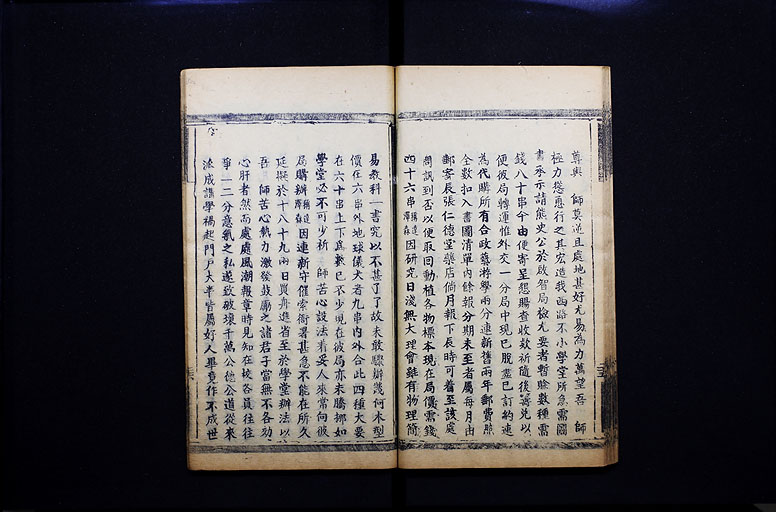 尊輿 師莫逆且處地甚好尤易為力萬望吾 師
極力慫慂行之其宏造我西路不小學堂所急需圖
書承示請熊史公於啟智局檢尤要者暫賒數種需
錢八十串今由便寄呈懇賜查收欵祈隨後籌兌以
便彼局轉運惟外交一分局中現已脫盡已訂約連
為代購所有合政藝游學兩分連新舊兩年郵費照
全數扣入書圖清單內餘報分期未至者屬每月由
郵客辰張仁德堂藥店倘月報下辰時可着至該處
問訊到否以便取回動植各物標本現在局價需錢
四十六串 因研究日淺無大理會雖有物理簡
易教科一書究以不甚了了故未敢驟辦幾何木型
價在六串外地球儀大者九串內外合此四種大要
在六十串上下為數已不少現在彼局亦未騰挪如
學堂必不可少祈 師苦心設法着妥人來常向彼
局購辦 因連新守催索衙署甚急不能在所久
延擬於十八十九兩日買舟進省至於學堂辦法以
吾 師苦心熱力激發鼓勵之諸君子當無不各劝
心肝者然而處處風潮報章時見知在校各員往往
爭一二分意氣之私遂致破壞千萬公德公道從來
法成講學禍起門戶大半皆屬好人畢竟作不成世